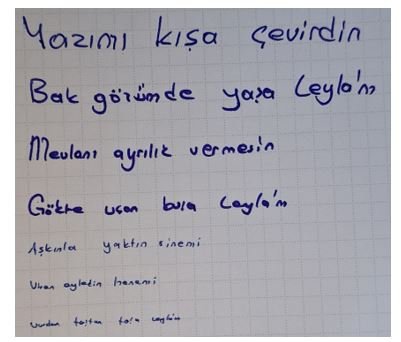 Yazımı kışa çevirdin
Bak gözümde yaşa Leyla'm
Mevlanı ayrılık vermesin
Gökte uçan kuşa Leyla'm
Aşkınla yaktın sinemi
Viran eyledin hanemi
vurdun taştan taşa Leyla'm